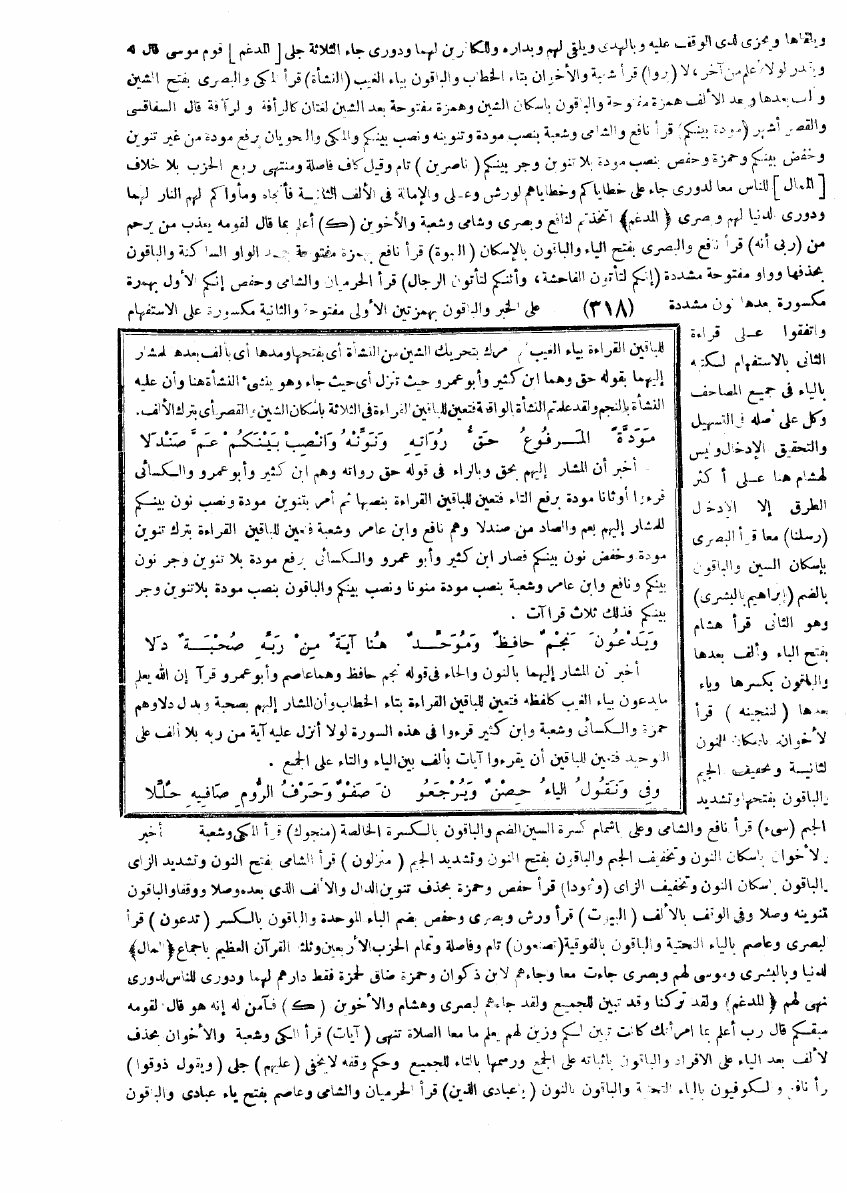 ويلقاها ويجزى لدى الوقف عليه وبالهدى ويلقى لهم وبداره وللكافرين لهما ودورى جاء الثلاثة جلى [المدغم] قوم موسى قال
ويقدر لولا أعلم من آخر، لا (يروا) قرأ شعبة والأخوان بتاء الخطاب والباقون بياء الغيب (النشأة) قرأ المكى والبصرى بفتح الشين
وألف بعدها وبعد الألف همزة مفتوحة والباقون باسكان الشين وهمزة مفتوحة بعد الشين لغتان كالرأفة والرآفة قال السفاقسى
والقصر أشهر (مودة بينكم) قرأ نافع والشامى وشعبة بنصب مودة وتنوينه ونصب بينكم والمكى والنحويان برفع مودة من غير تنوين
وخفض بينكم وحمزة وحفص بنصب مودة بلا تنوين وجر بينكم (ناصرين) تام وقيل كاف فاصلة ومنتهى ربع الحزب بلا خلاف
[الممال] للناس معا لدورى جاء على خطاياكم وخطاياهم لورش وعلى والإمالة فى الألف الثانية فأنجاه ومأواكم لهم النار لهما
ودورى الدنيا لهم وبصرى (المدغم) اتخذتم لنافع وبصرى وشامى وشعبة والأخوين (ك) أعلم بما قال لقومه يعذب من يرحم
من (ربى أنه) قرأ نافع والبصرى بفتح الياء والباقون بالإسكان (النبوة) قرأ نافع بهمزة مفتوحة بعد الواو الساكنة والباقون
بحذفها وواو مفتوحة مشددة (إنكم لتأتون الفاحشة، وأئنكم لتأتون الرجال) قرأ الحرميان والشامى وحفص إنكم الأول بهمزة
مكسورة بعدها نون مشددة (٣١٨) على الخبر والباقون بهمزتين الأولى مفتوحة والثانية مكسورة على الاستفهام
واتفقوا على قراءة
الثانى بالاستفهام لكتبه
بالياء فى جميع المصاحف
وكل على أصله فى التسهيل
والتحقيق والإدخال وليس
لهشام هنا على أكثر
الطرق إلا الإدخال
(رسلنا) معا قرأ البصرى
بإسكان السين والباقون
بالضم (إبراهيم بالبشرى)
وهو الثانى قرأ هشام
بفتح الهاء وألف بعدها
والباقون بكسرها وياء
بعدها (لننجينه) قرأ
الأخوان باسكان النون
الثانية وتخفيف الجيم
والباقون بفتحها وتشديد
للباقين القراءة بياء الغيب ثم أمرك بتحريك الشين من النشأة أى بفتحها ومدها أى بألف بعدها للمشار
إليهما بقوله حق وهما ابن كثير وأبو عمرو حيث تنزل أى حيث جاء وهو ينشئ النشأة هنا وأن عليه
النشأة بالنجم ولقد علمتم النشأة بالواقعة فتعين للباقين القراءة فى الثلاثة باسكان الشين والقصر أى بترك الألف.
مَوَدَّةً الْمَرْفُوعُ حَقُّ رُوَاتِهِ وَنَوِّنْهُ وَانْصِبْ بَيْنَكُمْ عَمَّ صَنْدَلَا
أخبر أن المشار إليهم بحق وبالراء فى قوله حق رواته وهم ابن كثير وأبو عمرو والكسائى
قرءوا أوثانا مودة برفع التاء فتعين للباقين القراءة بنصبها ثم أمر بتنوين مودة ونصب نون بينكم
للمشار إليهم بعم والصاد من صندلا وهم نافع وابن عامر وشعبة فتعين للباقين القراءة بترك تنوين
مودة وخفض نون بينكم فصار ابن كثير وأبو عمرو والكسائى برفع مودة بلا تنوين وجر نون
بينكم ونافع وابن عامر وشعبة بنصب مودة منونا ونصب بينكم والباقون بنصب مودة بلا تنوين وجر
بينكم فذلك ثلاث قراآت .
وَيَدْعُونَ نَجْمٌ حَافِظٌ وَمُوَحِّدٌ هُنَا آيَةٌ مِنْ رَبِّهِ صُحْبَةٌ دَلَا
أخبر أن المشار إليهما بالنون والحاء فى قوله نجم حافظ وهما عاصم وأبو عمرو قرآ إن الله يعلم
ما يدعون بياء الغيب كلفظه فتعين للباقين القراءة بتاء الخطاب وأن المشار إليهم بصحبة وبدال دلا وهم
حمزة والكسائى وشعبة وابن كثير قرءوا فى هذه السورة لولا أنزل عليه آية من ربه بلا ألف على
التوحيد فتعين للباقين أن يقرءوا آيات بألف بين الياء والتاء على الجمع .
وَفِى وَنَقُولُ الْيَاءُ حِصْنٌ وَيُرْجَعُو نَ صَفْوٌ وَحَرْفُ الرُّومِ صَافِيهِ حُلِّلَا
الجيم (سىء) قرأ نافع والشامى وعلى باشمام كسرة السين الضم والباقون بالكسرة الخالصة (منجوك) قرأ المكى وشعبة أخبر
والأخوان باسكان النون وتخفيف الجيم والباقون بفتح النون وتشديد الجيم (منزلون) قرأ الشامى بفتح النون وتشديد الزاى
والباقون باسكان النون وتخفيف الزاى (وثمودا) قرأ حفص وحمزة بحذف تنوين الدال والألف الذى بعده وصلا ووقفا والباقون
بتنوينه وصلا وفى الوقف بالألف (البيوت) قرأ ورش وبصرى وحفص بضم الباء الموحدة والباقون بالكسر (تدعون) قرأ
البصرى وعاصم بالياء التحتية والباقون بالفوقية (تصنعون) تام وفاصلة وتمام الحزب الأربعين وثلثا القرآن العظيم باجماع (الممال)
الدنيا وبالبشرى وموسى لهم وبصرى جاءت معا وجاءهم لابن ذكوان وحمزة ضاق لحمزة فقط دارهم لهما ودورى للناس لدورى
تنهى لهم (المدغم) ولقد تركنا وقد تبين للجميع ولقد جاءهم لبصرى وهشام والأخوين (ك) فآمن له إنه هو قال لقومه
سبقكم قال رب أعلم بما امرأتك كانت تبين لكم وزين لهم يعلم ما معا الصلاة تنهى (آيات) قرأ المكى وشعبة والأخوان بحذف
الألف بعد الياء على الافراد والباقون باثباته على الجمع ورسمها بالتاء للجميع وحكم وقفه لا يخفى (عليهم) جلى (ويقول ذوقوا)
قرأ نافع والكوفيون بالياء التحتية والباقون بالنون (يا عبادى الذين) قرأ الحرميان والشامى وعاصم بفتح ياء عبادى والباقون